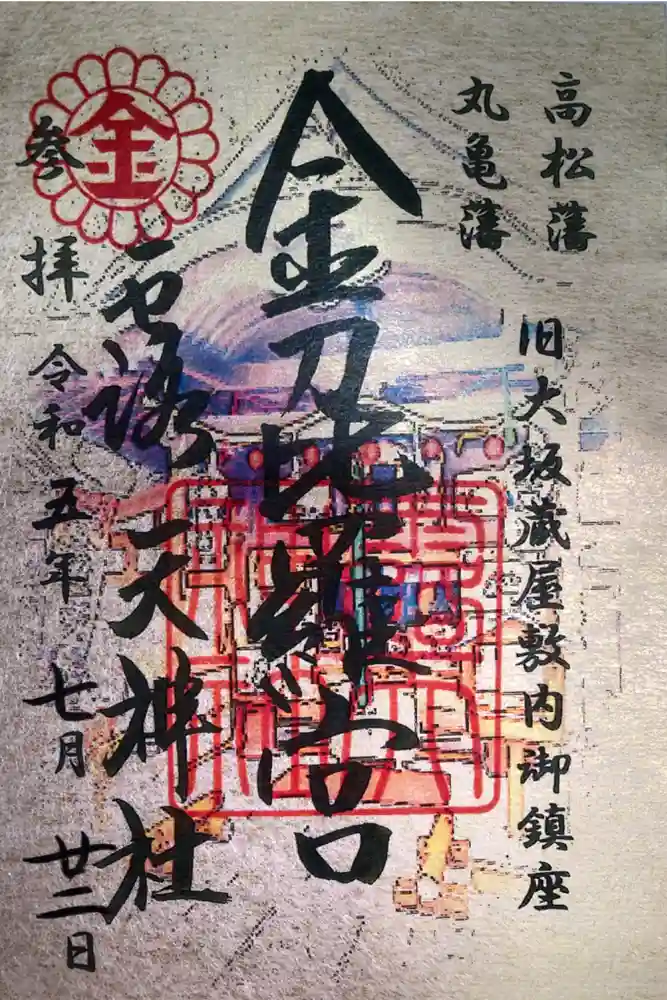 高松藩
丸亀藩
旧大坂蔵屋敷内御鎮座
金刀比羅宮
露天神社
金
参拝
令和五年七月廿二日